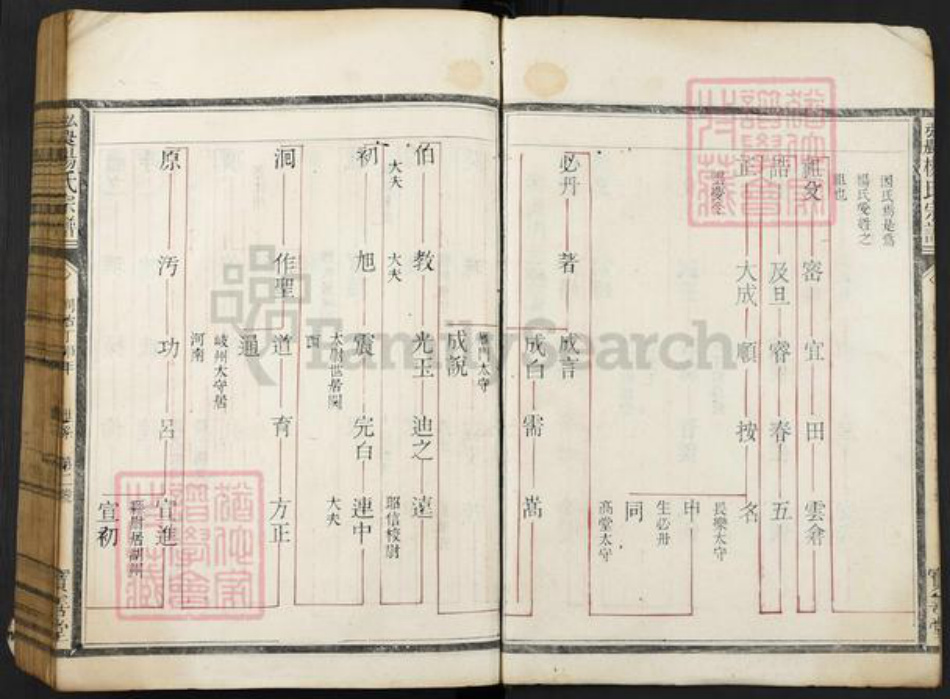 因氏焉是爲
楊氏受姓之
祖也
祖父 密 宜 田 雲
語 及旦 睿 春 五
大成 順 按 名
申
長樂太守
生必丹
同
高堂太守
必丹 著 成言
成白 需 嵩
鴈門太守
成說
伯 教 光玉 迪之 遠
大夫
大夫
昭信校尉
初 旭 震 完白 連中
太尉世居関
西
大夫
洞 作聖 道 育 方正
通
岐州太守居
河南
原 汚 功 呂 宜進
居湖州
宣初
楊氏宗譜
FamilySearch